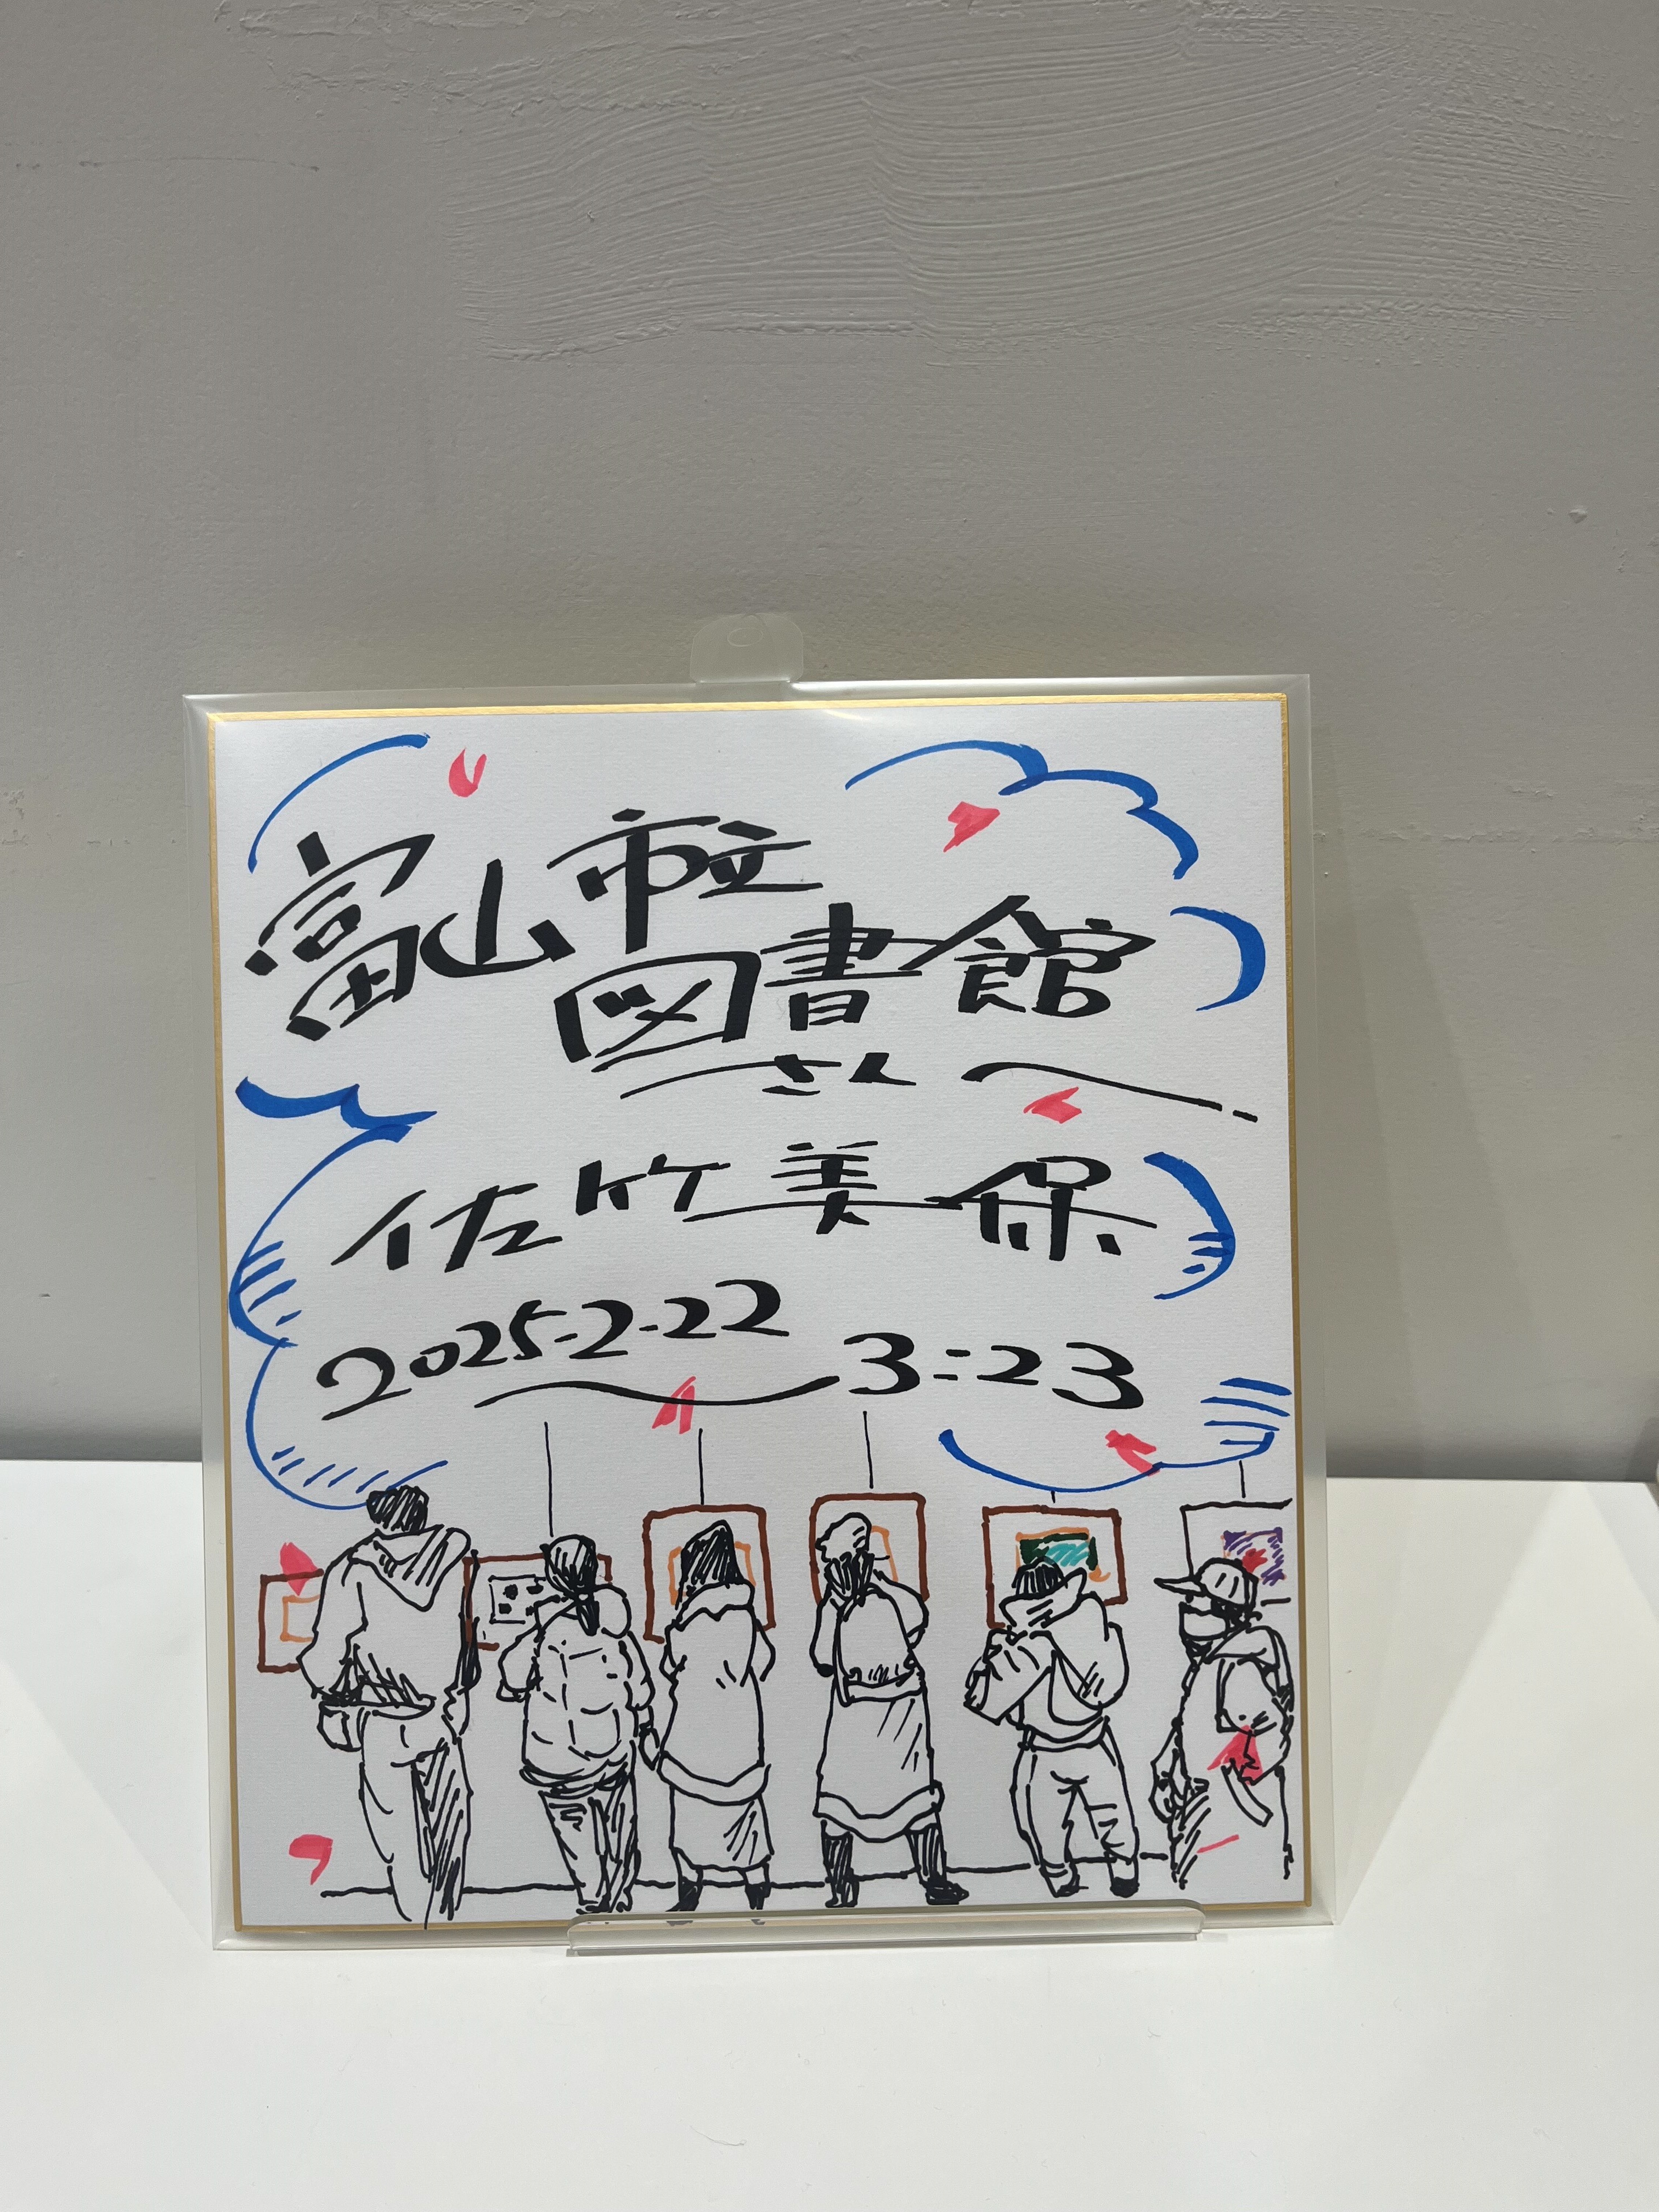 富山市立
図書館
さんへ
佐竹美保
2025-2-22 3:23